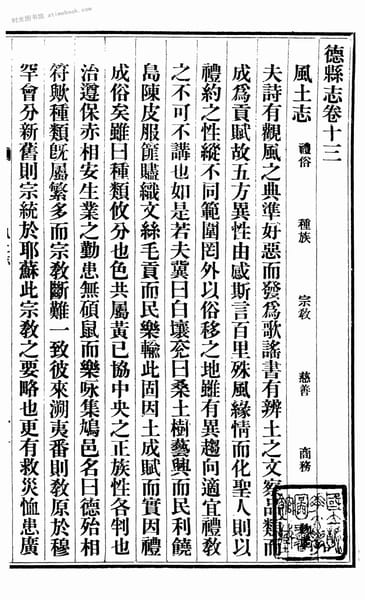 时光图书馆 www.stimebook.com
德縣志卷十三
風土志 禮俗 種族 宗敎 慈善 商務
夫詩有觀風之典準好惡而發爲歌謠書有辨土之文察品類而
成爲貢賦故五方異性由感斯言百里殊風緣情而化聖人則以
禮約之性縱不同範圍罔外以俗移之地雖有異趨向適宜禮敎
之不可不講也如是若夫冀曰白壤兗曰桑土樹藝興而民利饒
島陳皮服篚贐織文絲毛貢而民樂輸此固因土成賦而實因禮
成俗矣雖曰種類攸分也色共屬黃已協中央之正族性各判也
治遵保赤相安生業之勤患無碩鼠而樂咏集鳩邑名曰德殆相
符歟種類旣屬繁多而宗敎斷難一致彼來溯夷番則敎原於穆
罕會分新舊則宗統於耶蘇此宗敎之要略也更有救災恤患廣